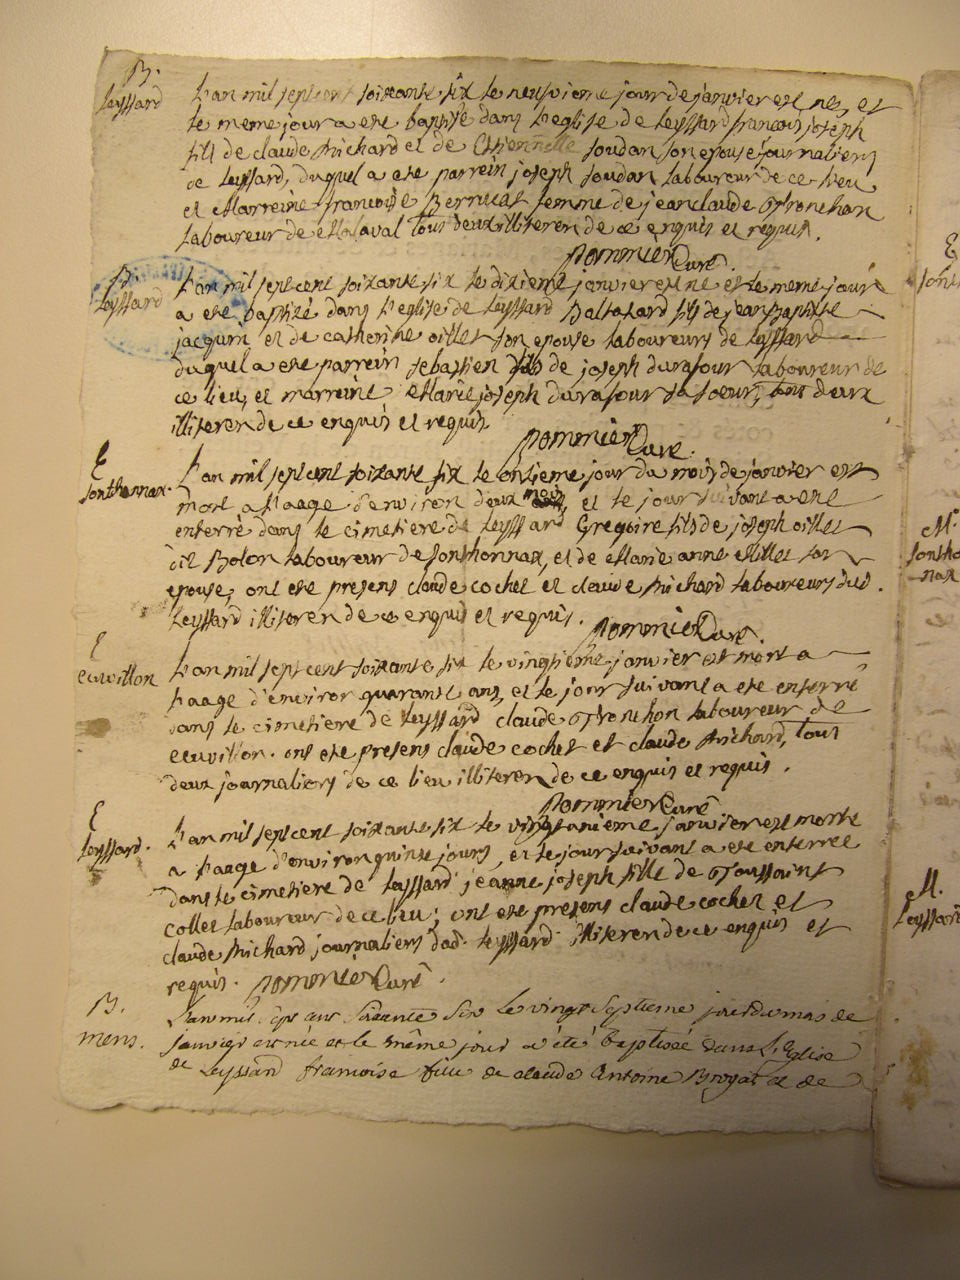 B.
Leyssard
L'an mil sept cent soixante six le neufvieme jour de janvier est né, et
le meme jour a eté baptisé dans l'eglise de Leyssard francois joseph
fils de claude Michard et de Estiennette Joudan son epouse journaliers
de Leyssard, duquel a ete parrein joseph Joudan laboureur de ce lieu
et Marreine francoise Berrucat femme de jean claude Tronchon
laboureur de Malaval tous deux illiteren de ce enquis et requis.
pommier Curé.
B.
Leyssard
L'an mil sept cent soixante six le dixieme janvier est né et le meme jour
a eté baptisé dans l'eglise de Leyssard Baltazard fils de jean Baptiste
jacquin et de catherine oillet son epouse laboureurs de Leyssard
duquel a ete parrein sebastien fils de joseph durafour laboureur de
ce lieu, et marreine Marie joseph durafour sa soeur, tous deux
illiteren de ce enquis et requis
pommier Curé.
E
sonthonnax.
L'an mil sept cent soixante six le onzieme jour du mois de janvier est
mort a l'aage d'environ deux mois, et le jour suivant a eté
enterré dans le cimetiere de Leyssard Gregoire fils de joseph oillet
dit Bolon laboureur de sonthonnax, et de Marie anne Millet son
epouse, ont ete presens claude cochet et claude Michard laboureurs dud.
Leyssard illiteren de ce enquis et requis.
pommier Curé.
E
ecuvillon
L'an mil sept cent soixante six le vingtieme janvier est mort a
l'aage d'environ quarante ans, et le jour suivant a ete enterré
dans le cimetiere de Leyssard claude Tronchon laboureur de
ecuvillon. ont ete presens claude cochet et claude Michard, tous
deux journaliers de ce lieu illiteren de ce enquis et requis.
pommier Curé
E
Leyssard.
L'an mil sept cent soixante six le vingt unieme janvier est morte
a l'aage d'environ quinze jours, et le jour suivant a ete enterree
dans le cimetiere de Leyssard jeanne joseph fille de Toussaint
collet laboureur de ce lieu; ont ete presens claude cochet et
claude Michard journaliers dud. Leyssard illiteren de ce enquis et
requis. pommier Curé.
B.
mens.
L'an mil sept cent soixante six le vingt septieme jour du mois de
janvier est née et le même jour a été baptisée dans L'Eglise
de Leyssard francoise fille de claude Antoine Broyat et de
M.
sontho
nax
M.
Leyssard